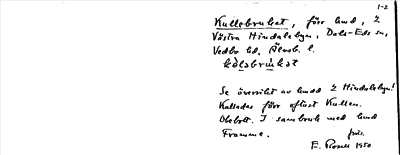 1-2
Kullebruket, förr hmd, i
Västra Hindalebyn, Dals-Eds sn,
Vedbo hd, Älvsb. l.
Se översikt av hmdd i Hindalebyn!
Kallades förr oftast Kullen.
Obebott. I sambruk med hmd
Framme.
E. Rosell 1950